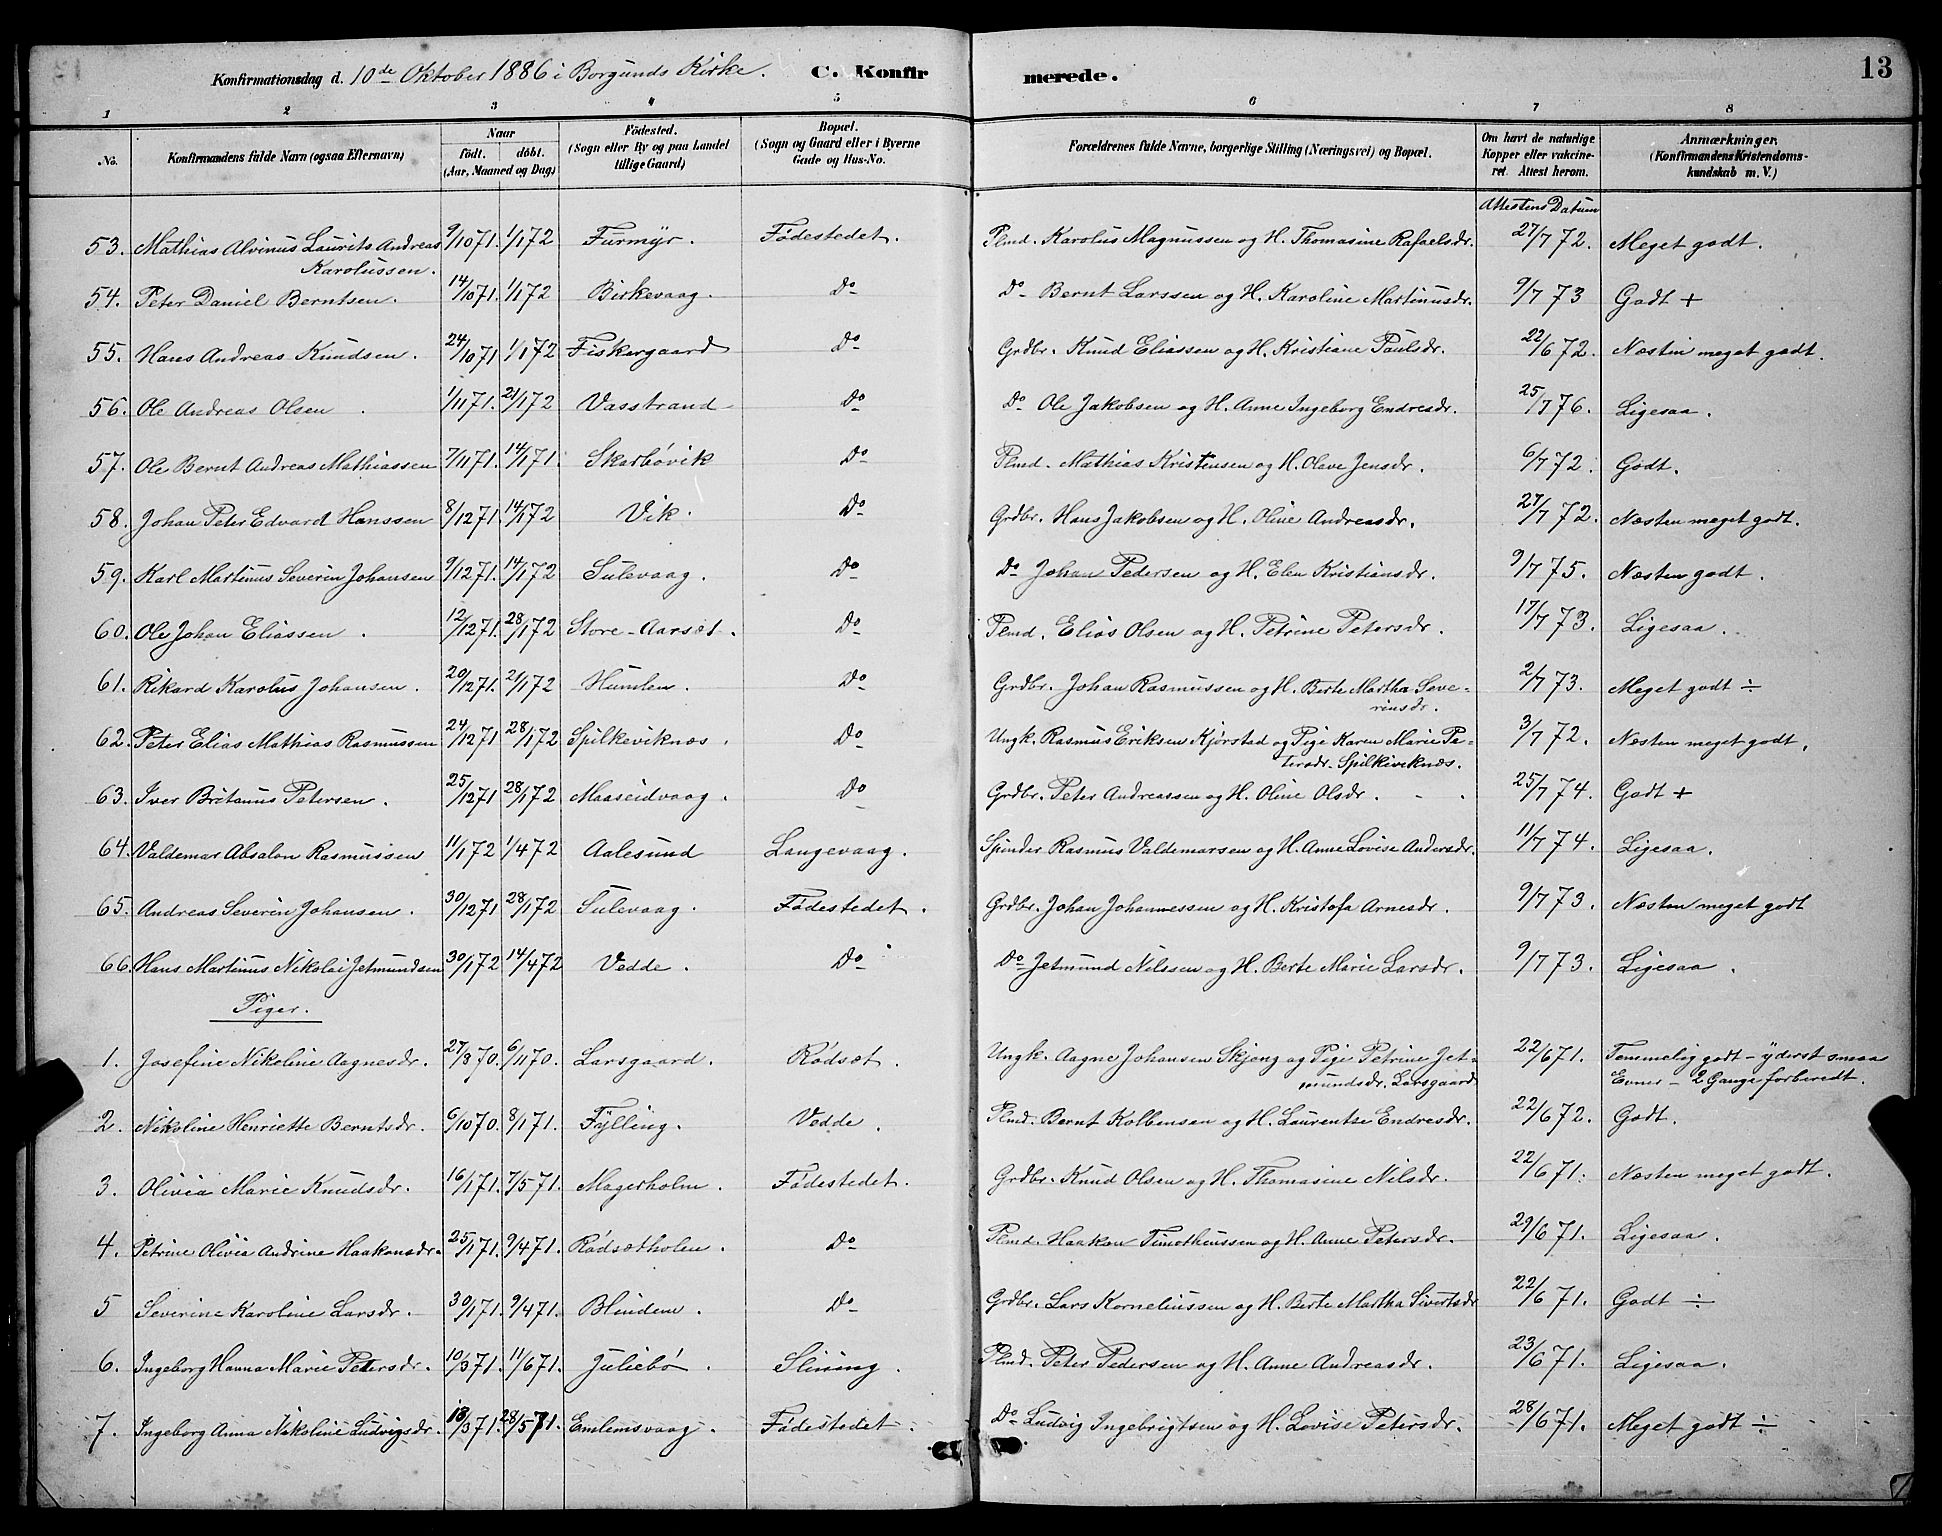 Konfirmationsdag d. 10de Oktober 1886 i Borgunds Kirke. C. Konfirmerede. 13
1 2 3 4 5 6 7 8
No. Konfirmandens fulde Navn (ogsaa Efternavn) Naar født. døbt. (Aar, Maaned og Dag) Fødested. (Sogn eller By og paa Landet tillige Gaard) Bopæl. (Sogn og Gaard eller i Byerne Gade og Hus-No. Forældrenes fulde Navne, borgerlige Stilling (Næringsvei) og Bopæl. Om havt de naturlige Kopper eller vakcineret. Attest herom. Anmærkninger. (Konfirmandens Kristendomskundskab m. V.)
Attestens Datum
53. Mathias Alvinus Laurits Andreas 9/10 71. 1/1 72 Furmyr. Fødestedet. Plmd. Karolus Magnussen og H. Thomasine Rafaelsdr. 27/7 72. Meget godt.
Karolussen.
54. Peter Daniel Berntsen. 14/10 71. 1/1 72 Birkevaag. Do Do Bernt Larssen og H. Karoline Martinusdr. 9/7 73 Godt +
55. Hans Andreas Knudsen. 24/10 71 1/1 72 Fiskergaard Do Grdbr. Knud Eliassen og H. Kristiane Paulsdr. 22/6 72. Næsten meget godt.
56. Ole Andreas Olsen. 1/11 71. 21/1 72 Vasstrand Do Do Ole Jakobsen og H. Anne Ingeborg Endresdr. 25/7 76. Ligesaa.
57. Ole Bernt Andreas Mathiassen 7/11 71. 14/1 71. Skarbøvik Do Plmd. Mathias Kristensen og H. Olave Jensdr. 6/7 72. Godt.
58. Johan Peter Edvard Hanssen 8/12 71. 14/1 72 Vik. Do Grdbr. Hans Jakobsen og H. Oline Andreasdr. 27/7 72. Næsten meget godt.
59. Karl Martinus Severin Johansen 9/12 71. 14/1 72 Sulevaag. Do Do Johan Pedersen og H. Elen Kristiansdr. 9/7 75. Næsten godt.
60. Ole Johan Eliassen. 12/12 71. 28/1 72 Store-Aarsæt. Do Plmd. Elias Olsen og H. Petrine Petersdr. 17/7 73. Ligesaa.
61. Rikard Karolus Johansen. 20/12 71. 21/1 72 Humlen. Do Grdbr. Johan Rasmussen og H. Berte Martha Seve- 2/7 73. Meget godt ÷
rinsdr.
62. Peter Elias Mathias Rasmussen 24/12 71 28/1 72 Spilkeviknæs. Do Ungk. Rasmus Eriksen Kjørstad og Pige Karen Marie Pe- 3/7 72. Næsten meget godt.
tersdr. Spilkeviknæs.
63. Iver Britanus Petersen. 25/12 71 28/1 72 Maaseidvaag. Do Grdbr. Peter Andreassen og H. Oline Olsdr. 25/7 74. Godt +
64. Valdemar Absalon Rasmussen 11/1 72 1/4 72 Aalesund Langevaag. Spinder Rasmus Valdemarsen og H. Anne Lovise Andersdr. 11/7 74. Ligesaa.
65. Andreas Severin Johansen. 30/12 71 28/1 72 Sulevaag. Fødestedet. Grdbr. Johan Johannessen og H. Kristofa Arnesdr. 9/7 73. Næsten meget godt
66. Hans Martinus Nikolai Jetmundsen 30/1 72 14/4 72 Vedde. Do Do Jetmund Nilssen og H. Berte Marie Larsdr. 9/7 73. Ligesaa.
Piger.
1. Josefine Nikoline Aagnesdr. 27/3 70. 6/11 70. Larsgaard. Rødsæt. Ungk. Aagne Johansen Skjong og Pige Petrine Jet- 22/6 71. Temmelig godt - yderst smaa
mundsdr. Larsgaard Evner - 2 Gange forberedt.
2. Nikoline Henriette Berntsdr. 6/10 70. 8/1 71. Fylling. Vedde. Plmd. Bernt Kolbensen og H. Laurentse Endresdr. 22/6 72. Godt.
3. Olivia Marie Knudsdr. 16/1 71. 7/5 71. Magerholm. Fødestedet. Grdbr. Knud Olsen og H. Thomasine Nilsdr. 22/6 71. Næsten meget godt.
4. Petrine Olivia Andrine Haakonsdr. 25/1 71. 9/4 71. Rødsætholen. Do Plmd. Haakon Timotheussen og H. Anne Petersdr. 29/6 71. Ligesaa.
5 Severine Karoline Larsdr. 30/1 71. 9/4 71. Blindem. Do Grdbr. Lars Korneliussen og H. Berte Martha Sivertsdr 22/6 71. Godt ÷
6. Ingeborg Hanna Marie Petersdr. 10/3 71. 11/6 71. Juliebø. Slining. Plmd. Peter Pedersen og H. Anne Andreasdr. 23/6 71. Ligesaa.
7. Ingeborg Anna Nikoline Ludvigsdr. 18/3 71. 28/5 71. Emlemsvaag. Fødestedet. Do Ludvig Ingebrigtsen og H. Lovise Petersdr. 28/6 71. Meget godt ÷